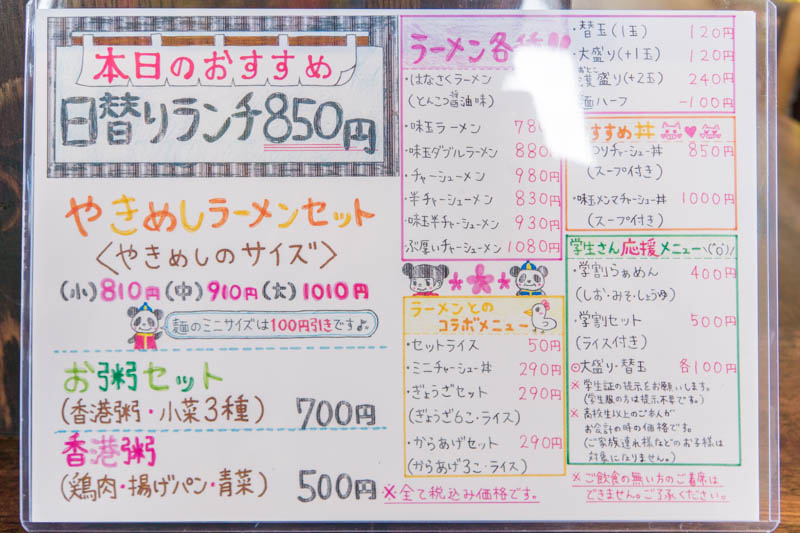 本日のおすすめ
日替りランチ850円
やきめしラーメンセット
〈やきめしのサイズ〉
(小)810円(中)910円(大)1010円
麺のミニサイズは100円引きです♪
お粥セット
(香港粥・小菜3種) 700円
香港粥
(鶏肉・揚げパン・青菜) 500円
ラーメン各種
・はなさくラーメン
(とんこつ醤油味)
・味玉ラーメン 780
・味玉ダブルラーメン 880
・チャーシューメン 980
・半チャーシューメン 830
・味玉半チャーシューメン 930
・ぶ厚いチャーシューメン 1080円
ラーメンとの
コラボメニュー
・セットライス 50円
・ミニチャーシュー丼 290円
・ぎょうざセット 290円
(ぎょうざ6こ・ライス)
・からあげセット 290円
(からあげ3こ・ライス)
※全て税込み価格です。
・替玉(1玉) 120円
・大盛り(+1玉) 120円
盛り(+2玉) 240円
麺ハーフ -100円
すすめ丼
チャーシュー丼 850円
(スープ付き)
・味玉メンマチャーシュー丼 1000円
(スープ付き)
学生さん応援メニュー\(^o^)/
・学割らぁめん 400円
(しお・みそ・しょうゆ)
・学割セット 500円
(ライス付き)
◎大盛り・替玉 各100円
※学生証の提示をお願いします。
(学生服の方は提示不要です。)
※高校生以上のご本人が
お会計の時の価格です。
(ご家族連れ様などのお子様は
対象になりません。)
※ご飲食の無い方のご着席は
できません。ご了承ください。